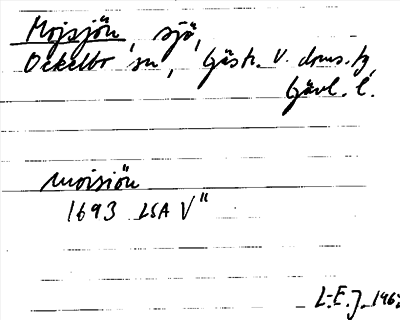 Mojsjön, sjö,
Ockelbo sn, Gästr. V. doms. hg,
Gävl. l.
moisiön
1693 LSA V"
L-E. J. 196